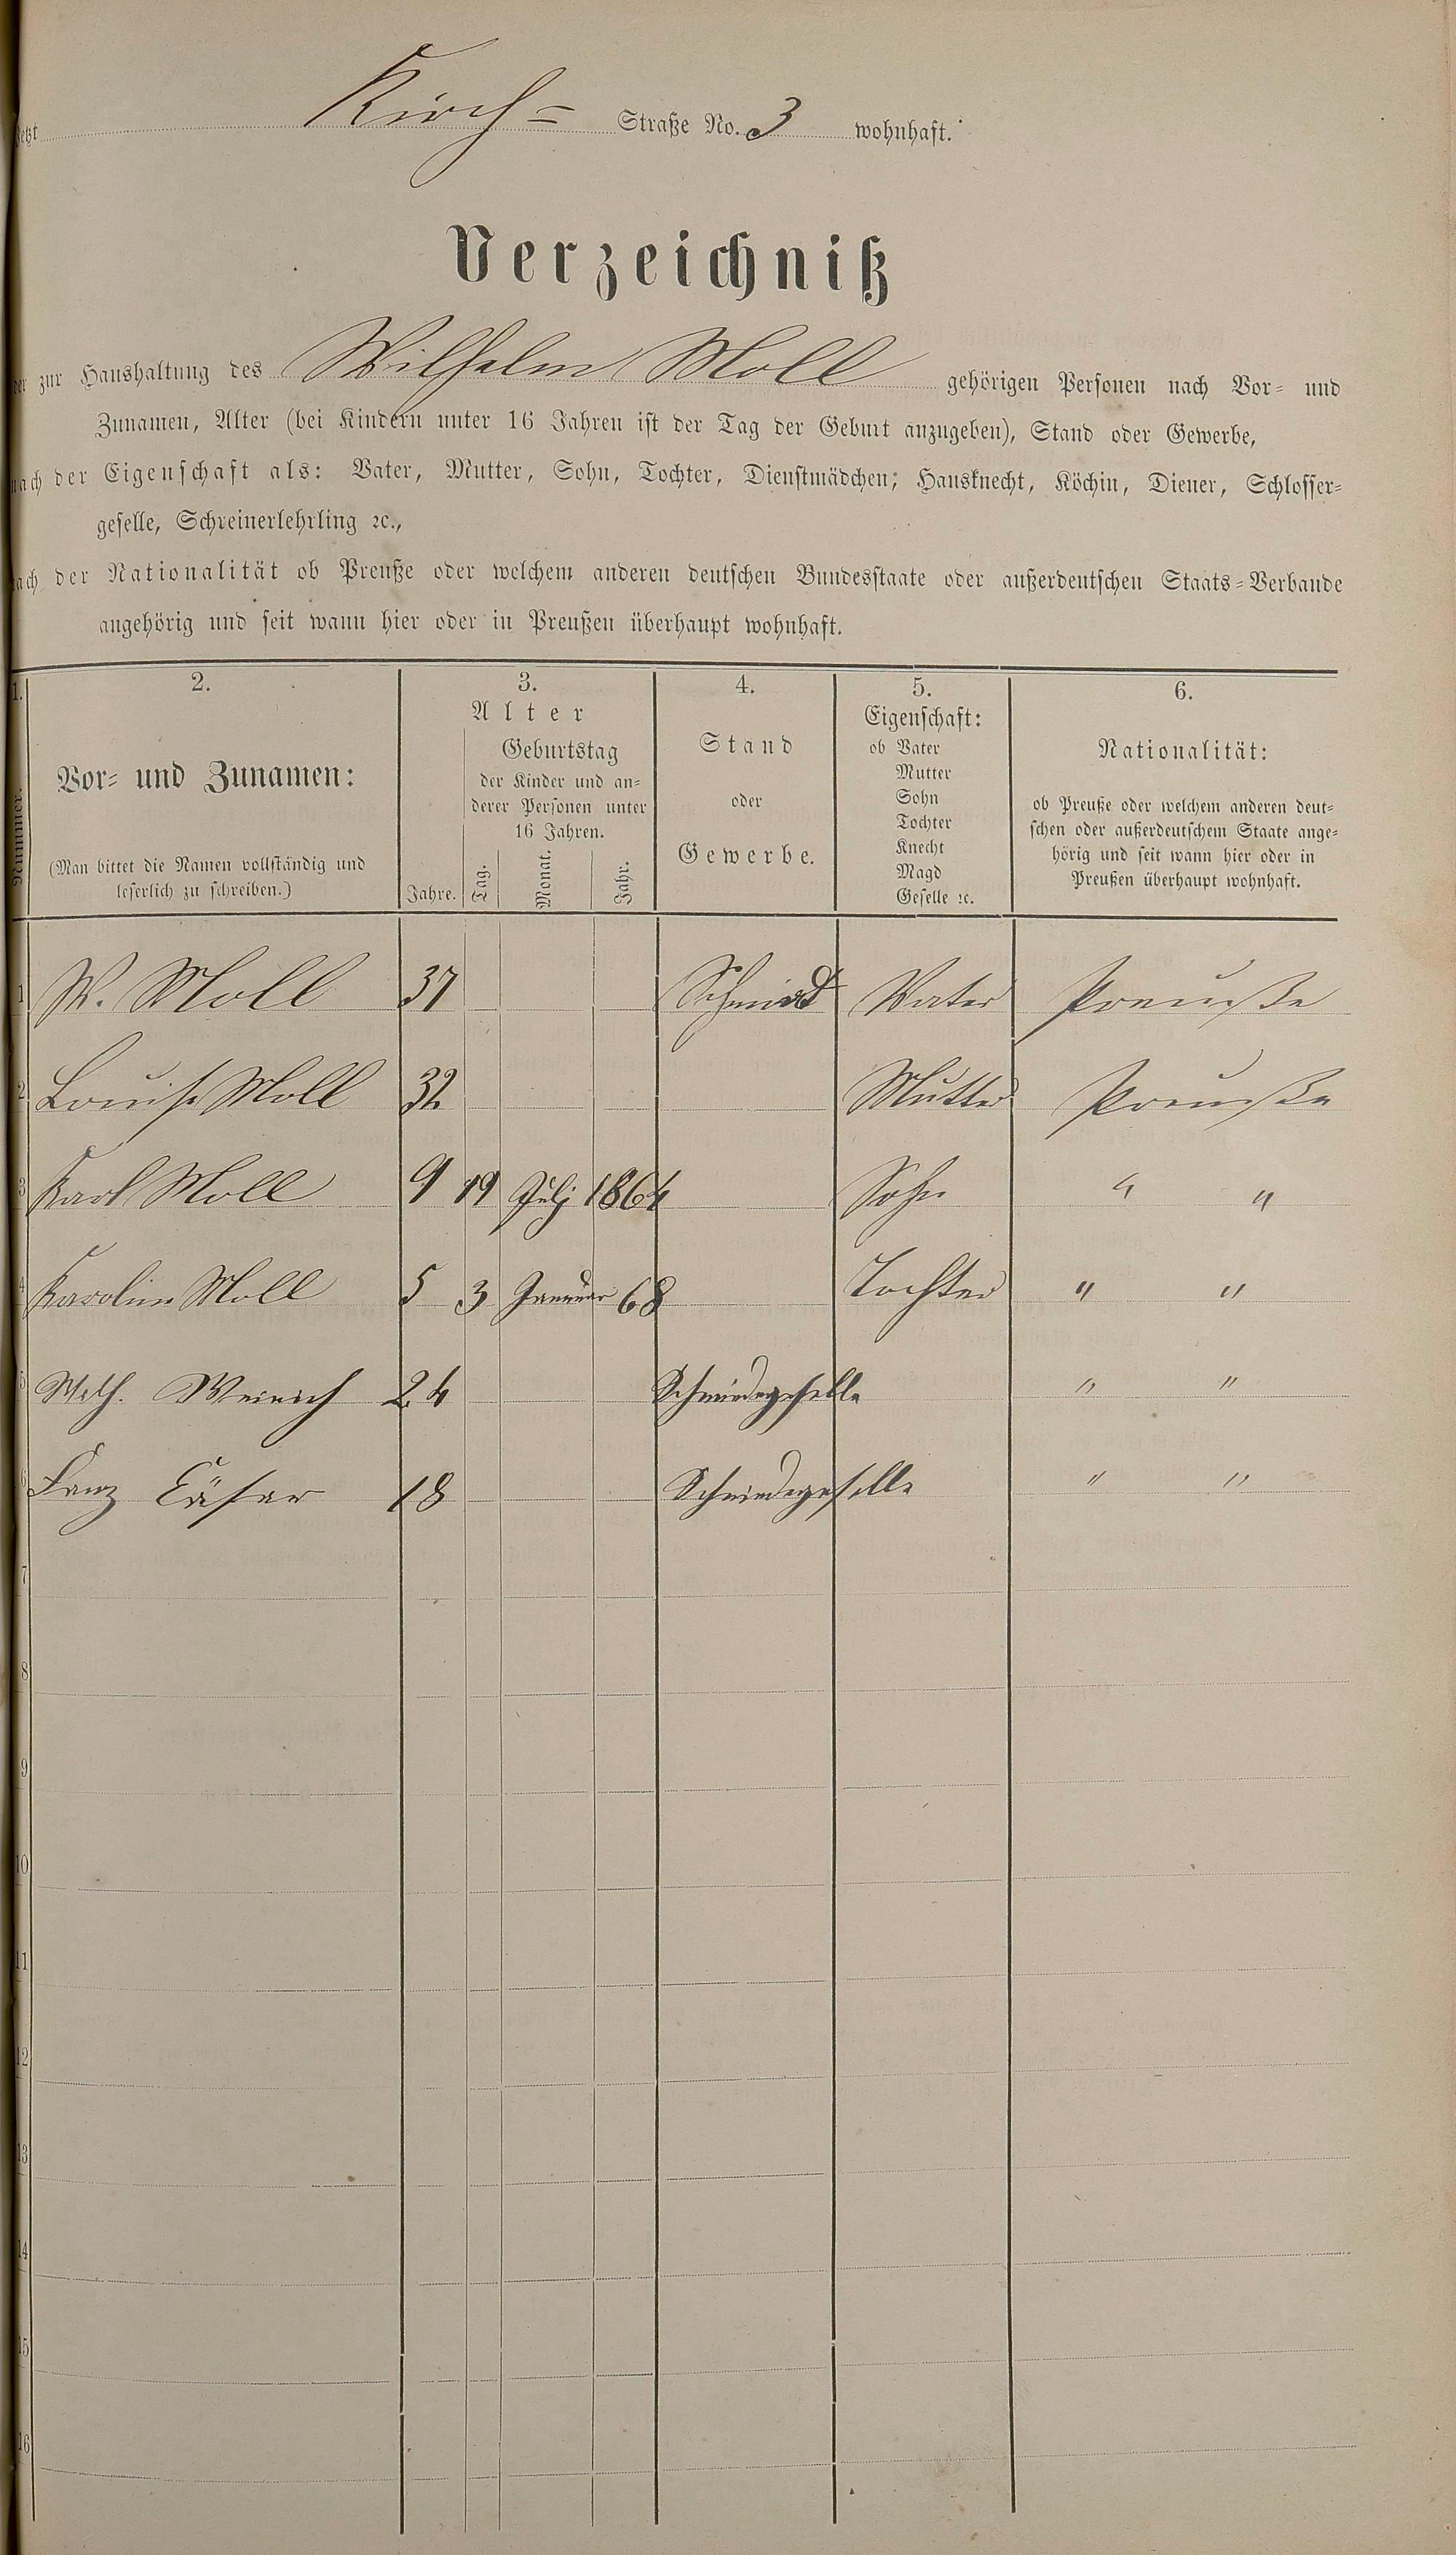 jetzt Kirch= Straße No. 3 wohnhaft.
Verzeichniß
der zur Haushaltung des Wilhelm Moll gehörigen Personen nach Vor= und
Zunamen, Alter (bei Kindern unter 16 Jahren ist der Tag der Geburt anzugeben), Stand oder Gewerbe,
nach der Eigenschaft als: Vater, Mutter, Sohn, Tochter, Dienstmädchen; Hausknecht, Köchin, Diener, Schlosser=
geselle, Schreinerlehrling ꝛc.,
nach der Nationalität ob Preuße oder welchem anderen deutschen Bundesstaate oder außerdeutschen Staats=Verbande
angehörig und seit wann hier oder in Preußen überhaupt wohnhaft.
1. 2. 3. 4. 5. 6.
Nummer.
Vor= und Zunamen:
(Man bittet die Namen vollständig und
leserlich zu schreiben.)
Alter
Jahre.
Geburtstag
der Kinder und an=
derer Personen unter
16 Jahren.
Tag. Monat. Jahr.
Stand
oder
Gewerbe.
Eigenschaft:
ob Vater
Mutter
Sohn
Tochter
Knecht
Magd
Geselle ꝛc.
Nationalität:
ob Preuße oder welchem anderen deut=
schen oder außerdeutschem Staate ange=
hörig und seit wann hier oder in
Preußen überhaupt wohnhaft.
1 W. Moll 37 Schmidt Vater Preuße
2 Louise Moll 32 Mutter Preuße
3 Karl Moll 9 19 Julj 1864 Sohn " "
4 Karoline Moll 5 3 Januar 68 Tochter " "
5 Wilh. Weirich 24 Schmiedegeselle " "
6 Franz Cäsar 18 Schmiedegeselle " "
7
8
9
10
11
12
13
14
15
16